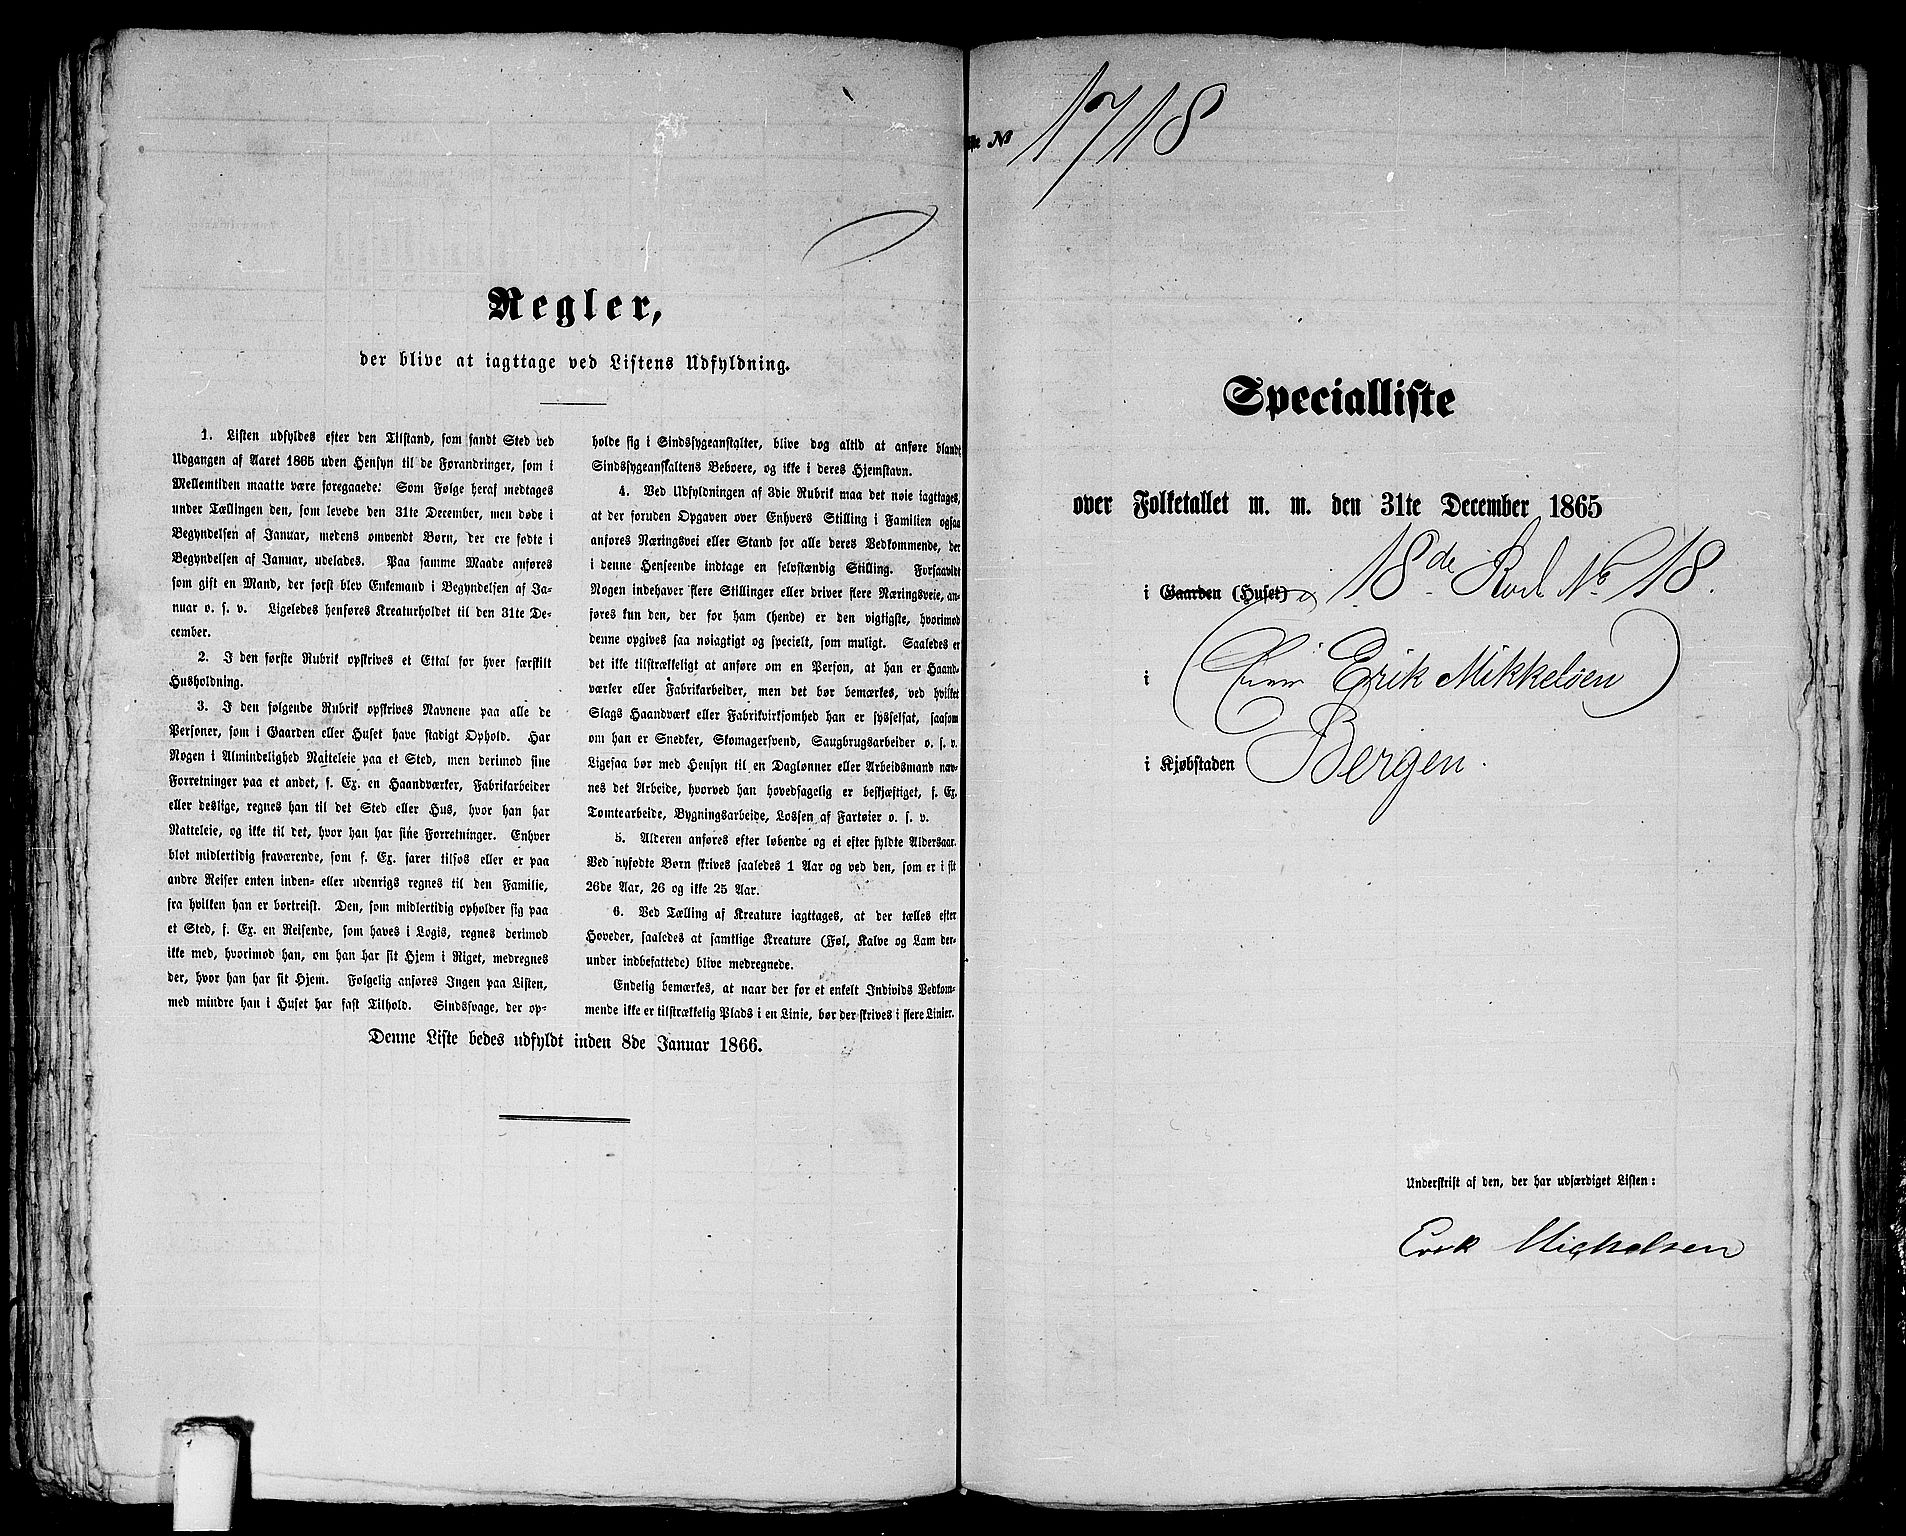 Regler,
der blive at iagttage ved Listens Udfyldning.
1. Listen udfyldes efter den Tilstand, som fandt Sted ved
Udgangen af Aaret 1865 uden Hensyn til de Forandringer, som i
Mellemtiden maatte være foregaaede. Som Følge heraf medtages
under Tællingen den, som levede den 31te December, men døde i
Begyndelsen af Januar, medens omvendt Børn, der ere fødte i
Begyndelsen af Januar, udelades. Paa samme Maade anføres
som gift en Mand, der først blev Enkemand i Begyndelsen af Ja-
nuar o. s. v. Ligeledes henføres Kreaturholdet til den 31te De-
cember.
2. I den første Rubrik opskrives et Ettal for hver særskilt
Husholdning.
3. I den følgende Rubrik opskrives Navnene paa alle de
Personer, som i Gaarden eller Huset have stadigt Ophold. Har
Nogen i Almindelighed Natteleie paa et Sted, men derimod sine
Forretninger paa et andet, f. Ex. en Haandværker, Fabrikarbeider
eller deslige, regnes han til det Sted eller Hus, hvor han har
Natteleie, og ikke til det, hvor han har sine Forretninger. Enhver
blot midlertidig fraværende, som f. Ex. farer tilsøs eller er paa
andre Reiser enten inden- eller udenrigs regnes til den Familie,
fra hvilken han er bortreist. Den, som midlertidig opholder sig paa
et Sted, f. Ex. en Reisende, som haves i Logis, regnes derimod
ikke med, hvorimod han, om han har sit Hjem i Riget, medregnes
der, hvor han har sit Hjem. Følgelig anføres Ingen paa Listen,
med mindre han i Huset har fast Tilhold. Sindssvage, der op-
holde sig i Sindssygeanstalter, blive dog altid at anføre blandt
Sindssygeanstaltens Beboere, og ikke i deres Hjemstavn.
4. Ved Udfyldningen af 3die Rubrik maa det nøie iagttages,
at der foruden Opgaven over Enhvers Stilling i Familien ogsaa
anføres Næringsvei eller Stand for alle deres Vedkommende, der
i denne Henseende indtage en selvstændig Stilling. Forsaavidt
Nogen indehaver flere Stillinger eller driver flere Næringsveie, an-
føres kun den, der for ham (hende) er den vigtigste, hvorimod
denne opgives saa nøiagtigt og specielt, som muligt. Saaledes er
det ikke tilstrækkeligt at anføre om en Person, at han er Haand-
værker eller Fabrikarbeider, men det bør bemærkes, ved hvilket
Slags Haandværk eller Fabrikvirksomhed han er sysselsat, saasom
om han er Snedker, Skomagersvend, Saugbrugsarbeider o. s. v.
Ligesaa bør med Hensyn til en Daglønner eller Arbeidsmand næv-
nes det Arbeide, hvorved han hovedsagelig er beskjæftiget, f. Ex.
Tomtearbeide, Bygningsarbeide, Lossen af Fartøier o. s. v.
5. Alderen anføres efter løbende og ei efter fyldte Aldersaar.
Ved nyfødte Børn skrives saaledes 1 Aar og ved den, som er i sit
26de Aar, 26 og ikke 25 Aar.
6. Ved Tælling af Kreature iagttages, at der tælles efter
Hoveder, saaledes at samtlige Kreature (Føl, Kalve og Lam der-
under indbefattede) blive medregnede.
Endelig bemærkes, at naar der for et enkelt Individs Vedkom-
mende ikke er tilstrækkelig Plads i en Linie, bør der skrives i flere Linier.
Denne Liste bedes udfyldt inden 8de Januar 1866.
№ 1718
Specialliste
over Folketallet m. m. den 31te December 1865
i Gaarden (Huset) 18de Rode No 18.
i Erik Mikkelsen
i Kjøbstaden Bergen.
Underskrift af den, der har udfærdiget Listen:
Erik Michelsen